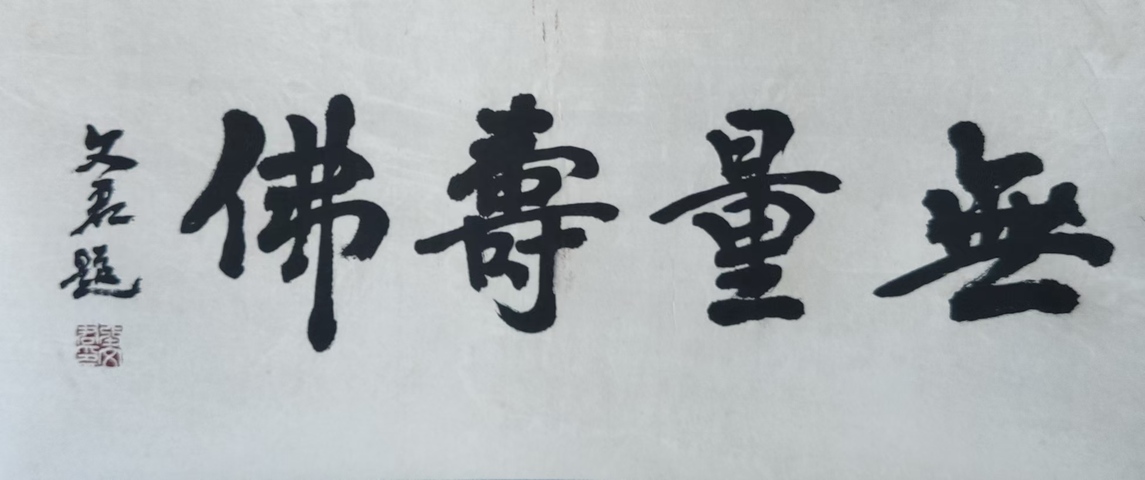 無量壽佛
文君題